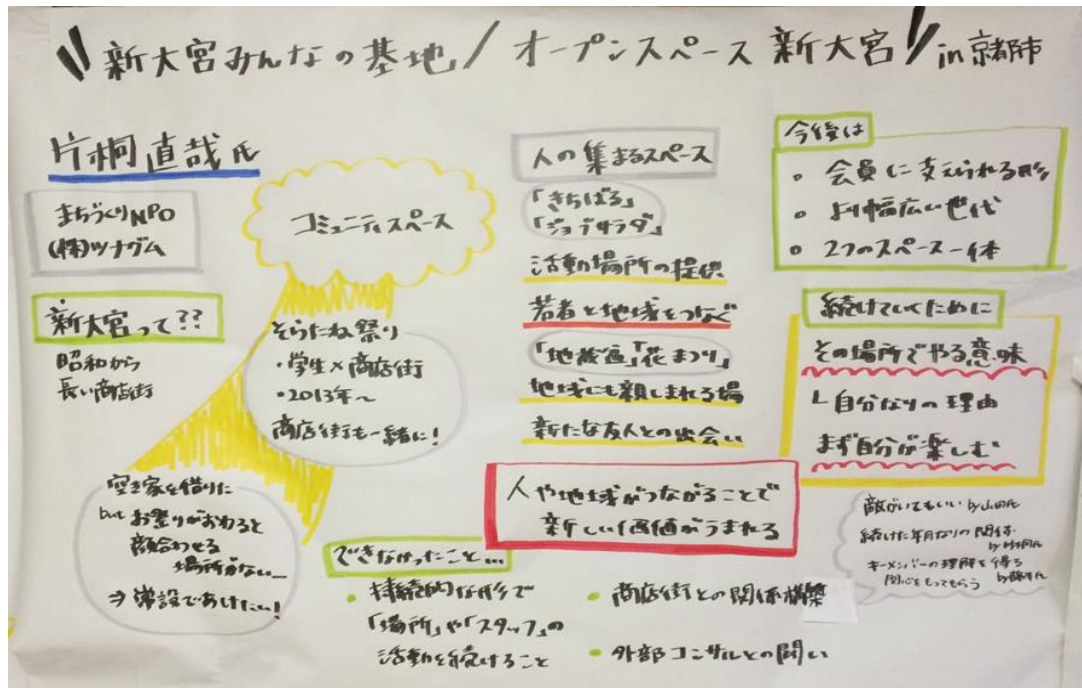 新大宮みんなの基地/オープンスペース 新大宮 in 京都市
片桐直哉氏
まちづくりNPO
(株)ツナグム
新大宮って??
昭和から
長い商店街
コミュニティスペース
そらたね祭り
・学生×商店街
・2013年〜
商店街も一緒に!
空き家を借りた
but お祭りがおわると
顔合わせる
場所がない…
⇒ 常設であけたい!
人の集まるスペース
「きちばる」
「ジョブサラダ」
活動場所の提供
若者と地域をつなぐ
「地蔵盆」「花まつり」
地域にも親しまれる場
新たな友人との出会い
人や地域がつながることで
新しい価値がうまれる
できなかったこと…
・持続的な形で
「場所」や「スタッフ」の
活動を続けること
・商店街との関係構築
・外部コンサルとの闘い
今後は
。会員に支えられる形
。より幅広い世代
。2つのスペース一体
続けていくために
その場所でやる意味
└自分なりの理由
まず自分が楽しむ
敵がいてもいい by山田氏
続けた年月なりの関係
キーメンバーの理解を得る
関心をもってもらう